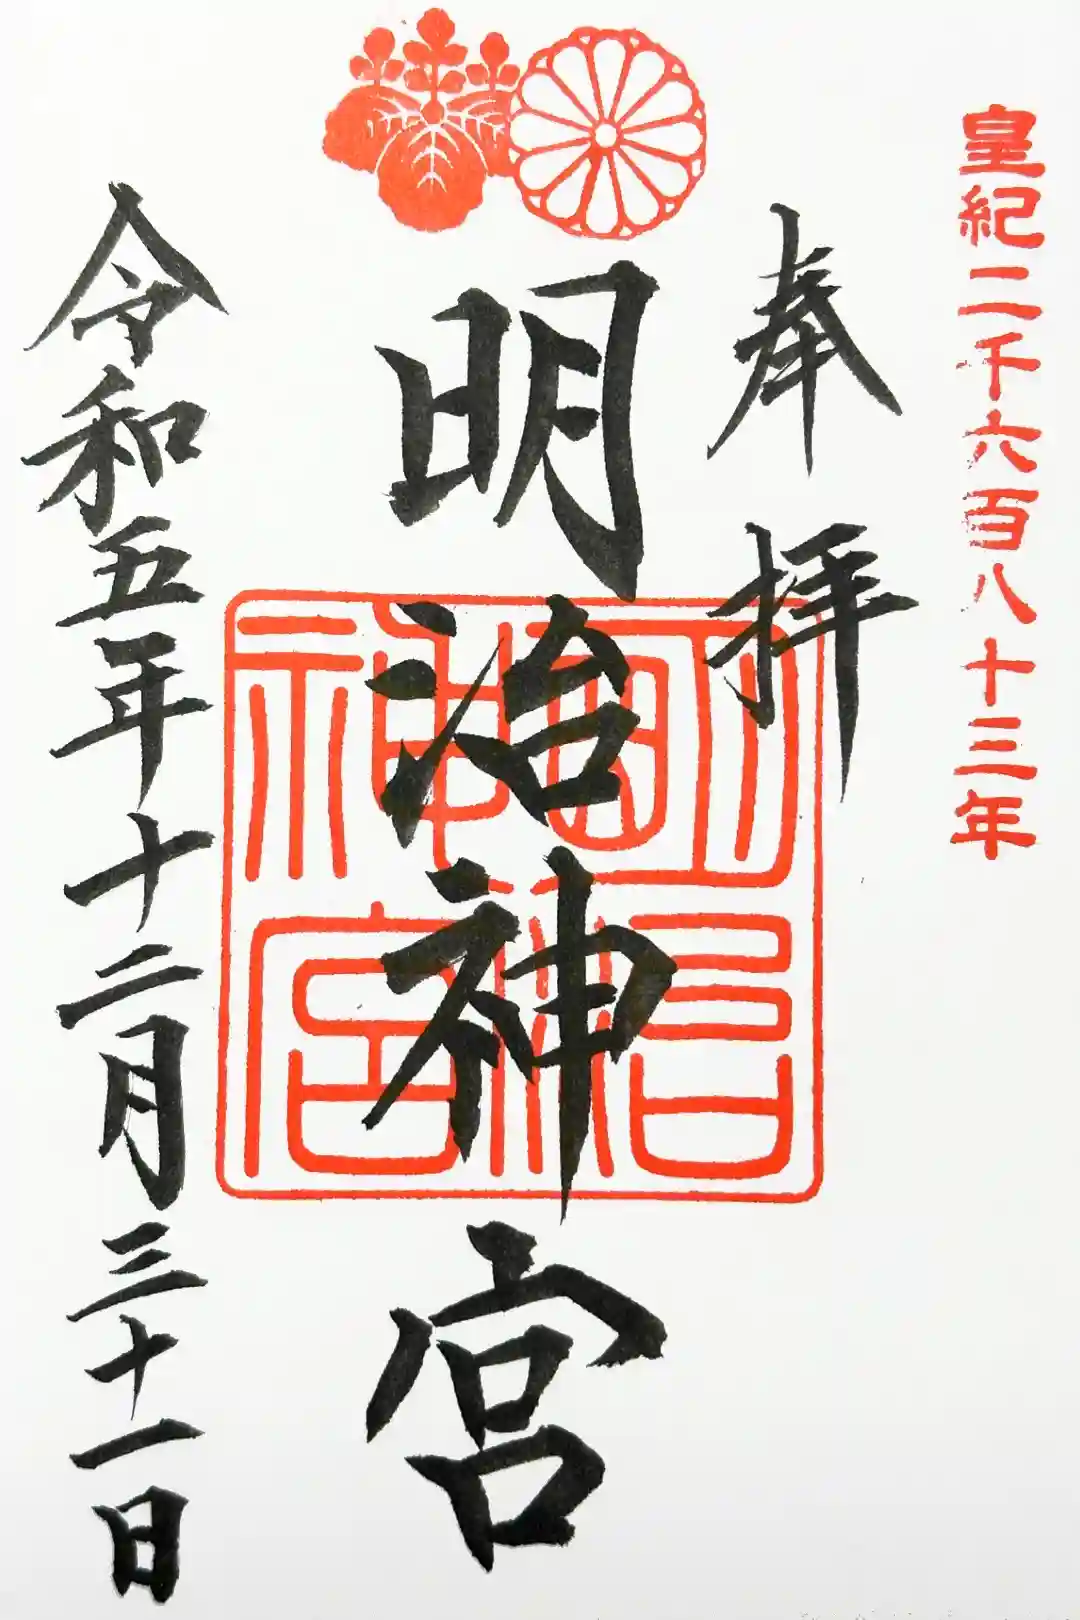 皇紀二千六百八十三年
奉拝
明治神宮
明治神宮
令和五年十二月三十一日